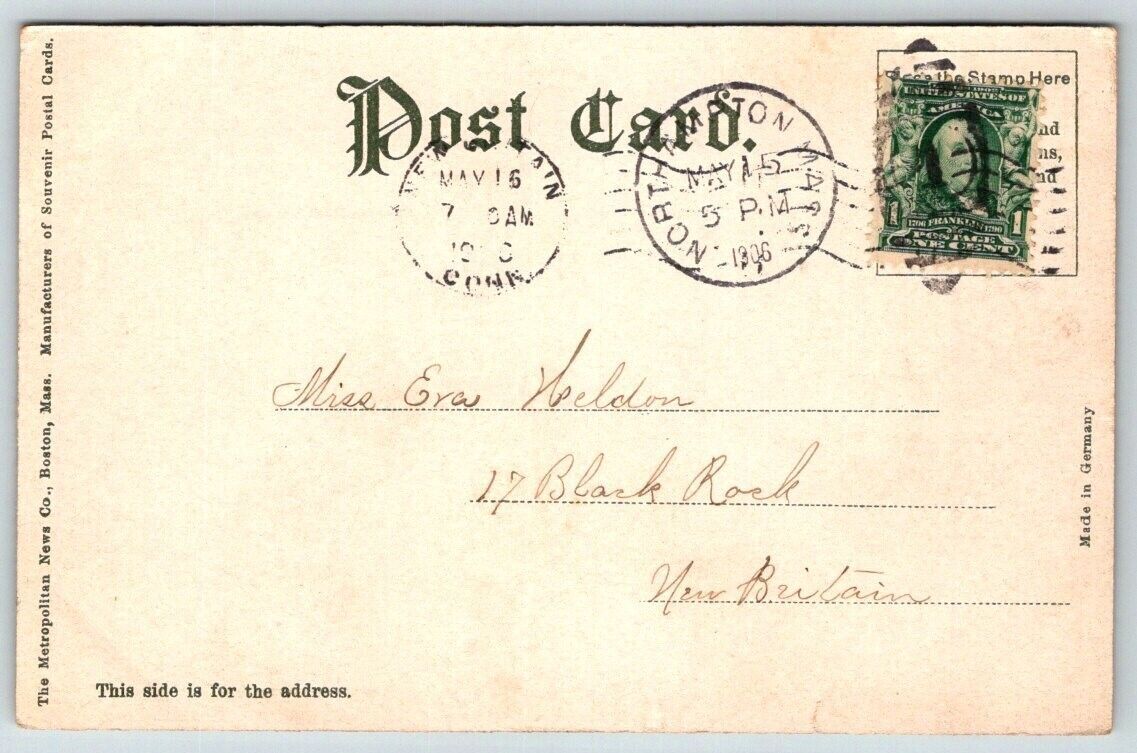 Post Card.
Place the Stamp Here
nd
ns,
nd
UNITED STATES OF
AMERICA
1 1
1706 FRANKLIN 1790
POSTAGE
ONE CENT
NEW BRITAIN
MAY 16
7 AM
CONN.
NORTHAMPTON MASS.
MAY 15
5 P.M
1906
Miss Eva Weldon
17 Black Rock
New Britain
This side is for the address.
The Metropolitan News Co., Boston, Mass. Manufacturers of Souvenir Postal Cards.
Made in Germany